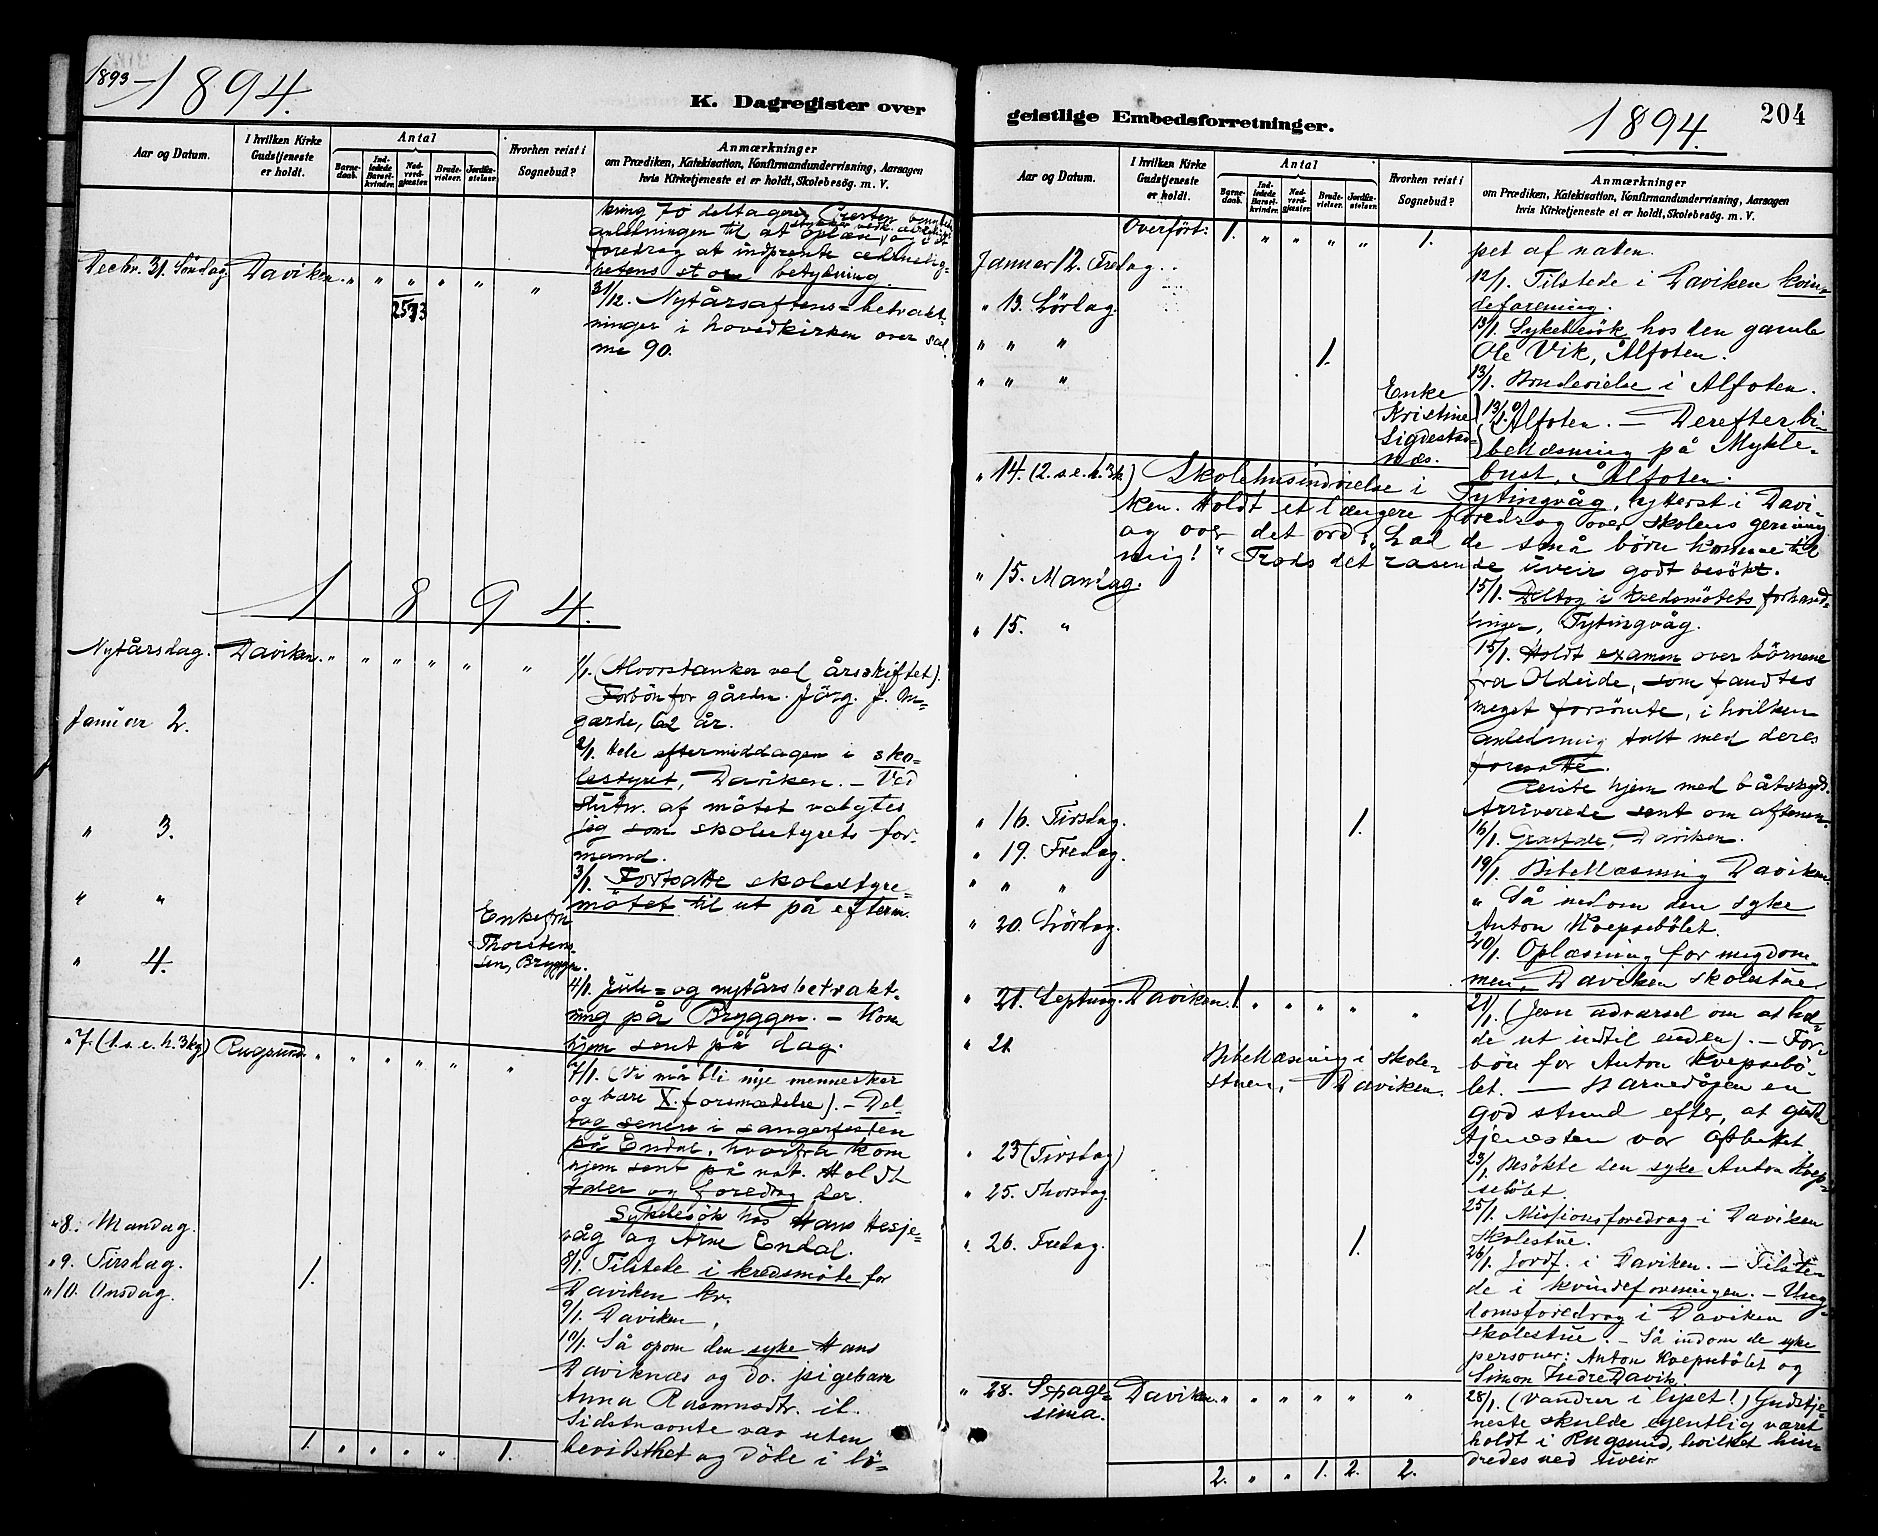 1893-1894.
K. Dagregister over
Aar og Datum.
I hvilken Kirke Gudstjeneste er holdt.
Antal
Barnedaab.
Indledede Barselkvinder.
Nadverdgjæster.
Brudevielser.
Jordfæstelser.
Hvorhen reist i Sognebud?
Anmærkninger
om Prædiken, Katekisation, Konfirmandundervisning, Aarsagen
hvis Kirketjeneste ei er holdt, Skolebesøg. m. V.
kring 70 deltagere. Presten
anledningen til at
foredrag at indprente
hetens store betydning.
Decbr. 31. Søndag. Daviken. " " " " " "
2573
31/12. Nytårsaftens-betrakt-
ninger i hovedkirken over sal-
me 90.
1894.
Nytårsdag. Daviken. " " " " " "
1/1. (Alvorstanker ved årsskiftet).
Forbön for gårdm. Jörg. J. M-
gærde, 62 år.
Januar 2.
2/1. Hele eftermiddagen i sko-
lestyret, Daviken. - Ved
slutn. af mötet valgtes
jeg som skolestyrets for-
mand.
" 3.
3/1. Fortsatte skolestyre-
mötet til ut på efterm.
" "
Enkefru
Thorsten-
sen, Bryggen.
" 4.
4/1. Jule- og nytårsbetrakt-
ning på Bryggen. - Kom
hjem sent på dag.
" 7. (1. s. e. h. 3 kg) Rugsund. " " " " " "
7/1. (Vi må bli nye mennesker
og bare X. formædelse). - Del-
tog senere i sangerfesten
på Endal, hvorfra kom
hjem sent på nat. Holdt
taler og foredrag der.
Sykebesök hos Hans Hesje-
våg og Arne Endal.
" 8. Mandag.
8/1. Tilstede i kredsmöte for
Daviken kr.
" 9. Tirsdag. 1.
9/1. Daviken,
" 10. Onsdag.
10/1. Så opom den syke Hans
Daviknæs og do. pigebarn
Anna Rasmusdtr. ib.
Sidstnævnte var uten
bevidsthet og döde i lö-
1. " " " " 1.
geistlige Embedsforretninger.
1894.
204
Aar og Datum.
I hvilken Kirke Gudstjeneste er holdt.
Antal
Barnedaab.
Indledede Barselkvinder.
Nadverdgjæster.
Brudevielser.
Jordfæstelser.
Hvorhen reist i Sognebud?
Anmærkninger
om Prædiken, Katekisation, Konfirmandundervisning, Aarsagen
hvis Kirketjeneste ei er holdt, Skolebesøg. m. V.
Overfört: 1. " " " " 1.
pet af natten.
Januar 12. Fredag.
12/1. Tilstede i Daviken kvin-
deforening.
" 13. Lördag.
13/1. Sykebesök hos den gamle
Ole Vik, Ålfoten.
" " " 1.
13/1. Brudevielse i Alfoten.
" " "
Enke
Kristine
Sigdestad-
næs.
13/1. Ålfoten. - Derefter bi-
bellæsning på Mykle-
bust, Ålfoten.
" 14. (2. s. e. h. 3k) Skolehusindvielse i Tytingvåg, ytterst i Davi-
ken. Holdt et længere foredrag over skolens gerning
og over det ord: "Lad de små börn komme til
mig!" Trods det rasende uveir godt besökt.
" 15. Mandag.
15/1. Deltog i kredsmötets forhand-
linger, Tytingvåg.
" 15. "
15/1. Holdt examen over börnene
fra Oldeide, som fandtes
meget forsömte, i hvilken
anledning talt med deres
foresatte.
Reiste hjem med båtskyds.
Arriverede sent om aftenen.
" 16. Tirsdag. 1.
16/1. Gravtale, Daviken.
" 19. Fredag.
19/1. Bibellæsning Daviken.
" " "
" Så nedom den syke
Anton Kvepsebölet.
" 20. Lördag.
20/1. Oplæsning for ungdom-
men, Daviken skolestue.
" 21. Septuag. Daviken. 1. " " " " "
21/1. (Jesu advarsel om at hol-
de ut indtil enden). - For-
bön for Anton Kvepsebö-
let. - Barnedåpen en
god stund efter, at guds-
tjenesten var afsluttet
" 21.
Bibellæsning i skole-
stuen, Daviken.
" 23 (Tirsdag)
23/1. Besökte den syke Anton Kvep-
sebölet.
" 25. Thorsdag.
25/1. Missionsforedrag i Daviken
skolestue.
" 26. Fredag. 1.
26/1. Jordf. i Daviken. - Tilste-
de i kvindeforeningen. - Ung-
domsforedrag i Daviken
skolestue. - Så indom de syke
personer: Anton Kvepsebölet og
Simon Indre Davik.
" 28. Sexage-
sima. Daviken. " " " " " "
28/1. (Vandrer i lyset!) Gudstje-
neste skulde egentlig været
holdt i Rugsund, hvilket hin-
dredes ved uveir
2. " " 1. 2. 2.